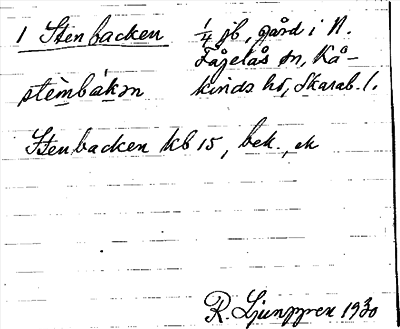 1 Stenbacken ¼ jb, gård i N.
Fågelås sn, Kå-
stèmbákɘn kinds hd, Skarab. l.
Stenbacken kb 15, bek., ek
R. Ljunggren 1930